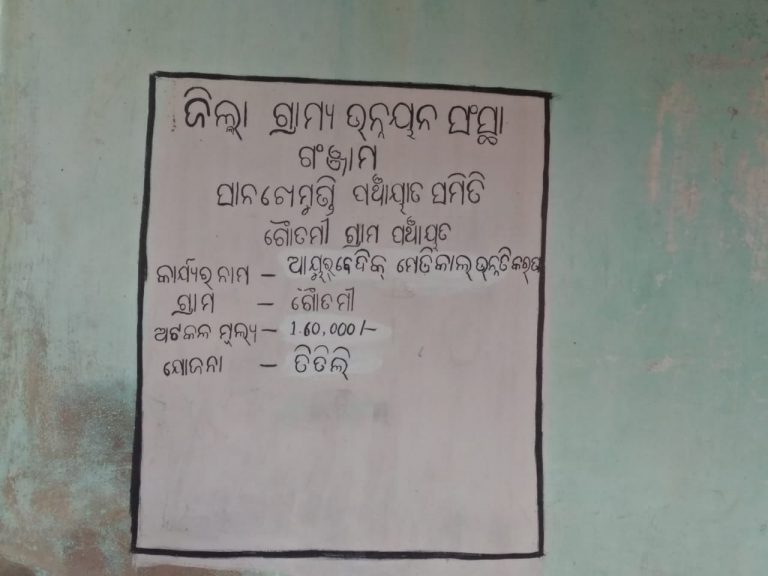 ଜିଲ୍ଲା ଗ୍ରାମ୍ୟ ଉନ୍ନୟନ ସଂସ୍ଥା
ଗଂଞ୍ଜାମ
ସାନଖେମୁଣ୍ଡି ପଞ୍ଚାୟାତ ସମିତି
ଗୌତମୀ ଗ୍ରାମ ପଞ୍ଚାୟତ
କାର୍ଯ୍ୟର ନାମ – ଆୟୁର୍ବେଦିକ୍ ମେଡିକାଲ୍ ଉନ୍ନତିକରଣ
ଗ୍ରାମ – ଗୌତମୀ
ଅଟକଳ ମୂଲ୍ୟ – 1.60,000/-
ଯୋଜନା – ତିତିଲି